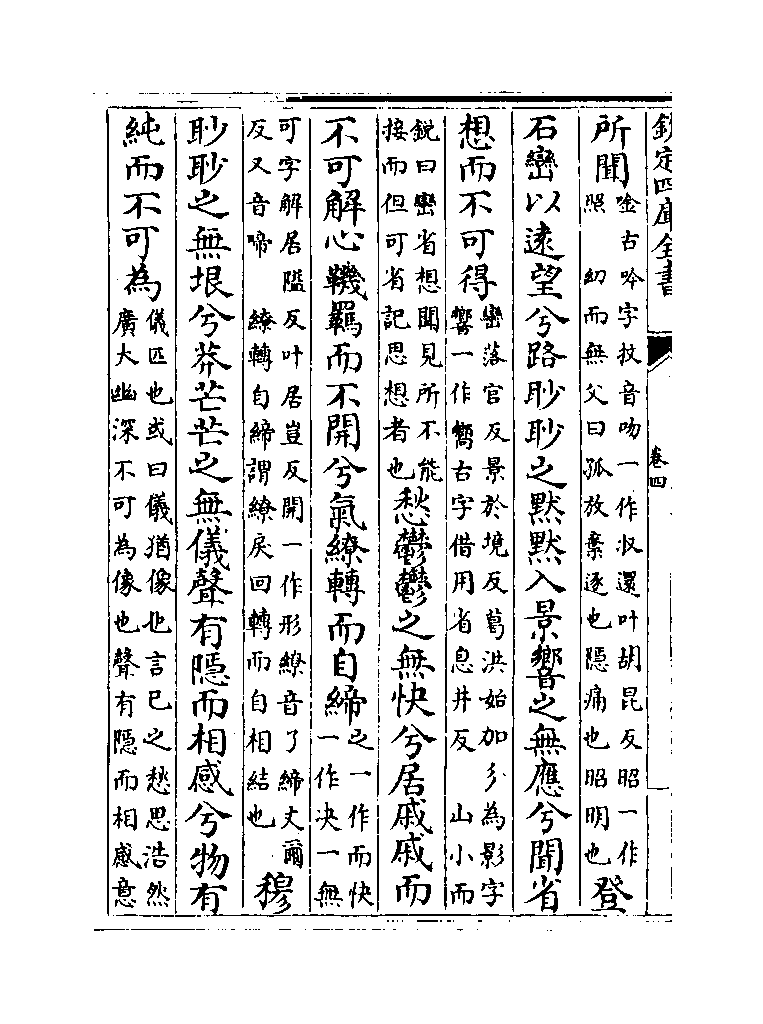 欽定四庫全書
卷四
所聞
唫古吟字抆音吻一作収還叶胡昆反昭一作
照 㓜而無父曰孤放棄逐也隱痛也昭明也
登
石巒以逺望兮路眇眇之黙黙入景響之無應兮聞省
想而不可得
巒落官反景於境反葛洪始加彡為影字
響一作嚮古字借用省息井反 山小而
銳曰巒省想聞見所不能
接而但可省記思想者也
愁鬱鬱之無快兮居戚戚而
不可解心鞿羈而不開兮氣繚轉而自締
之一作而快
一作决一無
可字解居隘反叶居豈反開一作形繚音了締丈爾
反又音啼 繚轉自締謂繚戾回轉而自相結也
穆
眇眇之無垠兮莽芒芒之無儀聲有隱而相感兮物有
純而不可為
儀匹也或曰儀猶像也言已之愁思浩然
廣大幽深不可為像也聲有隱而相感意